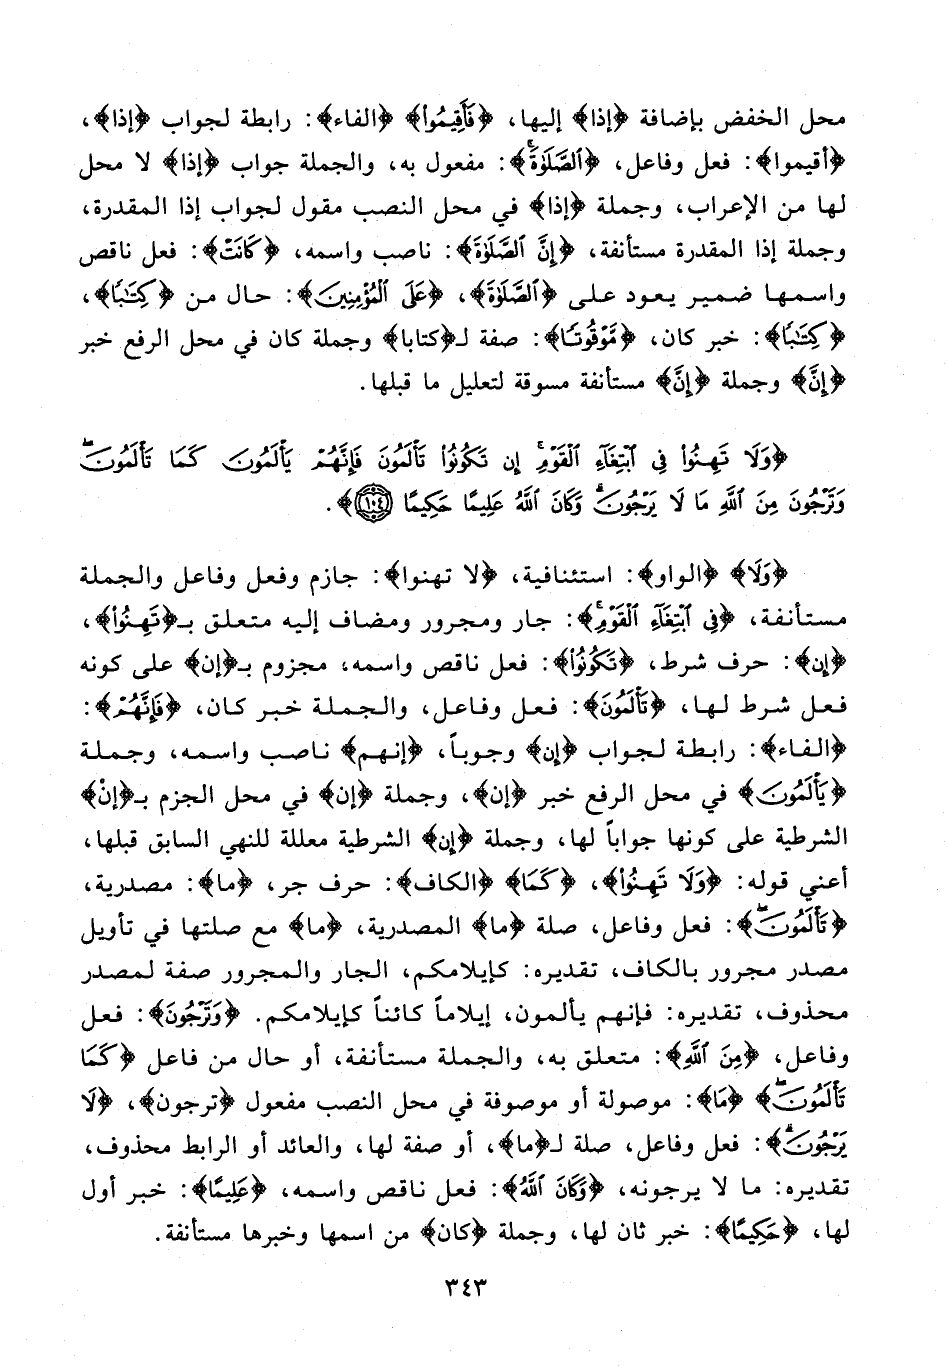 محل الخفض بإضافة ﴿إذا﴾ إليها، ﴿فَأَقِيمُوا۟﴾ ﴿الفاء﴾: رابطة لجواب ﴿إذا﴾،
﴿أقيموا﴾: فعل وفاعل، ﴿ٱلصَّلَوٰةَۚ﴾: مفعول به، والجملة جواب ﴿إذا﴾ لا محل
لها من الإعراب، وجملة ﴿إذا﴾ في محل النصب مقول لجواب إذا المقدرة،
وجملة إذا المقدرة مستأنفة، ﴿إِنَّ ٱلصَّلَوٰةَ﴾: ناصب واسمه، ﴿كَانَتْ﴾: فعل ناقص
واسمها ضمير يعود على ﴿ٱلصَّلَوٰةَ﴾، ﴿عَلَى ٱلْمُؤْمِنِينَ﴾: حال من ﴿كِتَٰبًا﴾،
﴿كِتَٰبًا﴾: خبر كان، ﴿مَّوْقُوتًا﴾: صفة لـ﴿كتابا﴾ وجملة كان في محل الرفع خبر
﴿إِنَّ﴾ وجملة ﴿إِنَّ﴾ مستأنفة مسوقة لتعليل ما قبلها.
﴿وَلَا تَهِنُوا۟ فِى ٱبْتِغَآءِ ٱلْقَوْمِۖ إِن تَكُونُوا۟ تَأْلَمُونَ فَإِنَّهُمْ يَأْلَمُونَ كَمَا تَأْلَمُونَۖ
وَتَرْجُونَ مِنَ ٱللَّهِ مَا لَا يَرْجُونَۗ وَكَانَ ٱللَّهُ عَلِيمًا حَكِيمًا ١٠٤﴾.
﴿وَلَا﴾ ﴿الواو﴾: استئنافية، ﴿لا تهنوا﴾: جازم وفعل وفاعل والجملة
مستأنفة، ﴿فِى ٱبْتِغَآءِ ٱلْقَوْمِۖ﴾: جار ومجرور ومضاف إليه متعلق بـ﴿تَهِنُوا۟﴾،
﴿إِن﴾: حرف شرط، ﴿تَكُونُوا۟﴾: فعل ناقص واسمه، مجزوم بـ﴿إن﴾ على كونه
فعل شرط لها، ﴿تَأْلَمُونَ﴾: فعل وفاعل، والجملة خبر كان، ﴿فَإِنَّهُمْ﴾:
﴿الفاء﴾: رابطة لجواب ﴿إن﴾ وجوباً، ﴿إنهم﴾ ناصب واسمه، وجملة
﴿يَأْلَمُونَ﴾ في محل الرفع خبر ﴿إن﴾، وجملة ﴿إن﴾ في محل الجزم بـ﴿إنْ﴾
الشرطية على كونها جواباً لها، وجملة ﴿إن﴾ الشرطية معللة للنهي السابق قبلها،
أعني قوله: ﴿وَلَا تَهِنُوا۟﴾، ﴿كَمَا﴾ ﴿الكاف﴾: حرف جر، ﴿ما﴾: مصدرية،
﴿تَأْلَمُونَۖ﴾: فعل وفاعل، صلة ﴿ما﴾ المصدرية، ﴿ما﴾ مع صلتها في تأويل
مصدر مجرور بالكاف، تقديره: كإيلامكم، الجار والمجرور صفة لمصدر
محذوف، تقديره: فإنهم يألمون، إيلاماً كائناً كإيلامكم. ﴿وَتَرْجُونَ﴾: فعل
وفاعل، ﴿مِنَ ٱللَّهِ﴾: متعلق به، والجملة مستأنفة، أو حال من فاعل ﴿كَمَا
تَأْلَمُونَۖ﴾ ﴿مَا﴾: موصولة أو موصوفة في محل النصب مفعول ﴿ترجون﴾، ﴿لَا
يَرْجُونَۗ﴾: فعل وفاعل، صلة لـ﴿ما﴾، أو صفة لها، والعائد أو الرابط محذوف،
تقديره: ما لا يرجونه، ﴿وَكَانَ ٱللَّهُ﴾: فعل ناقص واسمه، ﴿عَلِيمًا﴾: خبر أول
لها، ﴿حَكِيمًا﴾: خبر ثان لها، وجملة ﴿كان﴾ من اسمها وخبرها مستأنفة.
٣٤٣